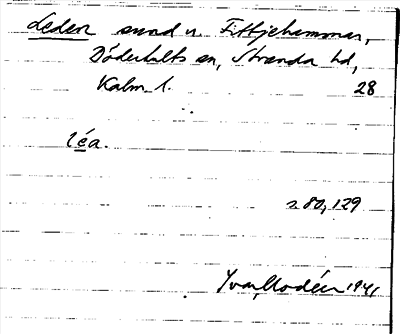 Leden surd n. Fittjehammar,
Döderhults sn, Stranda hd,
Kalm. l. 28
léa.
s. 80, 129
Ivar Modéer 1941